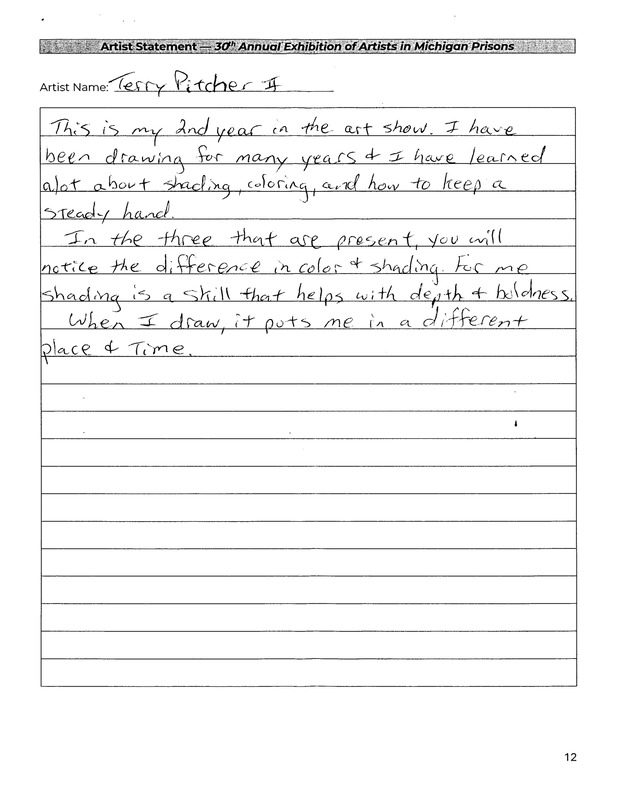 Artist Statement — 30th Annual Exhibition of Artists in Michigan Prisons
Artist Name: Terry Pitcher II
This is my 2nd year in the art show. I have
been drawing for many years & I have learned
alot about shading, coloring, and how to keep a
steady hand.
In the three that are present, you will
notice the difference in color & shading. For me
shading is a skill that helps with depth & boldness.
When I draw, it puts me in a different
place & Time.
12